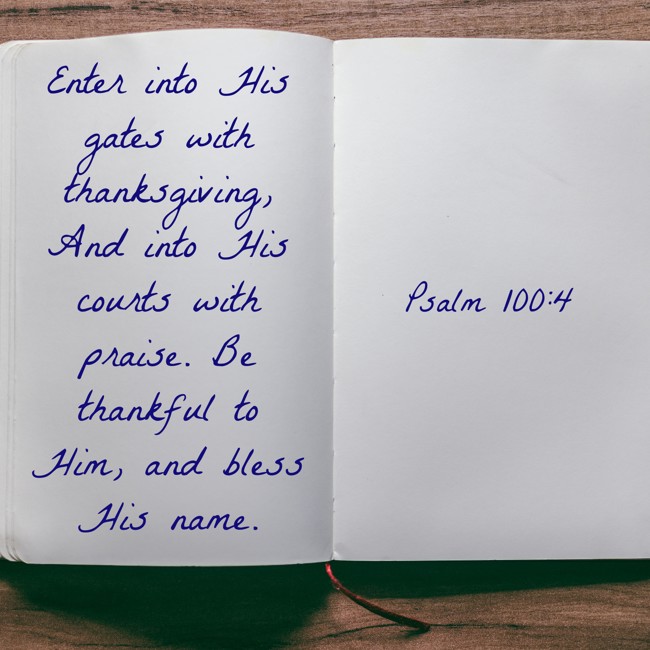 Enter into His
gates with
thanksgiving,
And into His
courts with
praise. Be
thankful to
Him, and bless
His name.
Psalm 100:4